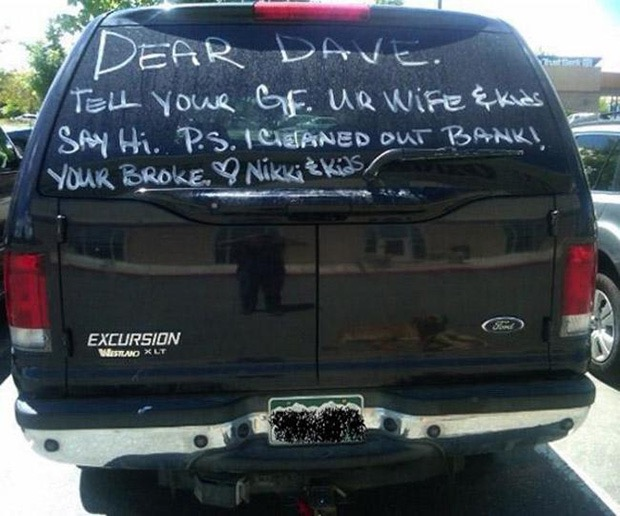 DEAR DAVE.
TELL YOUR GF. UR WIFE & KIDS
SAY Hi. P.S. I CLEANED OUT BANK!
YOUR BROKE. ♡ NIKKI & KIDS
EXCURSION
WESTLAND XLT
Ford